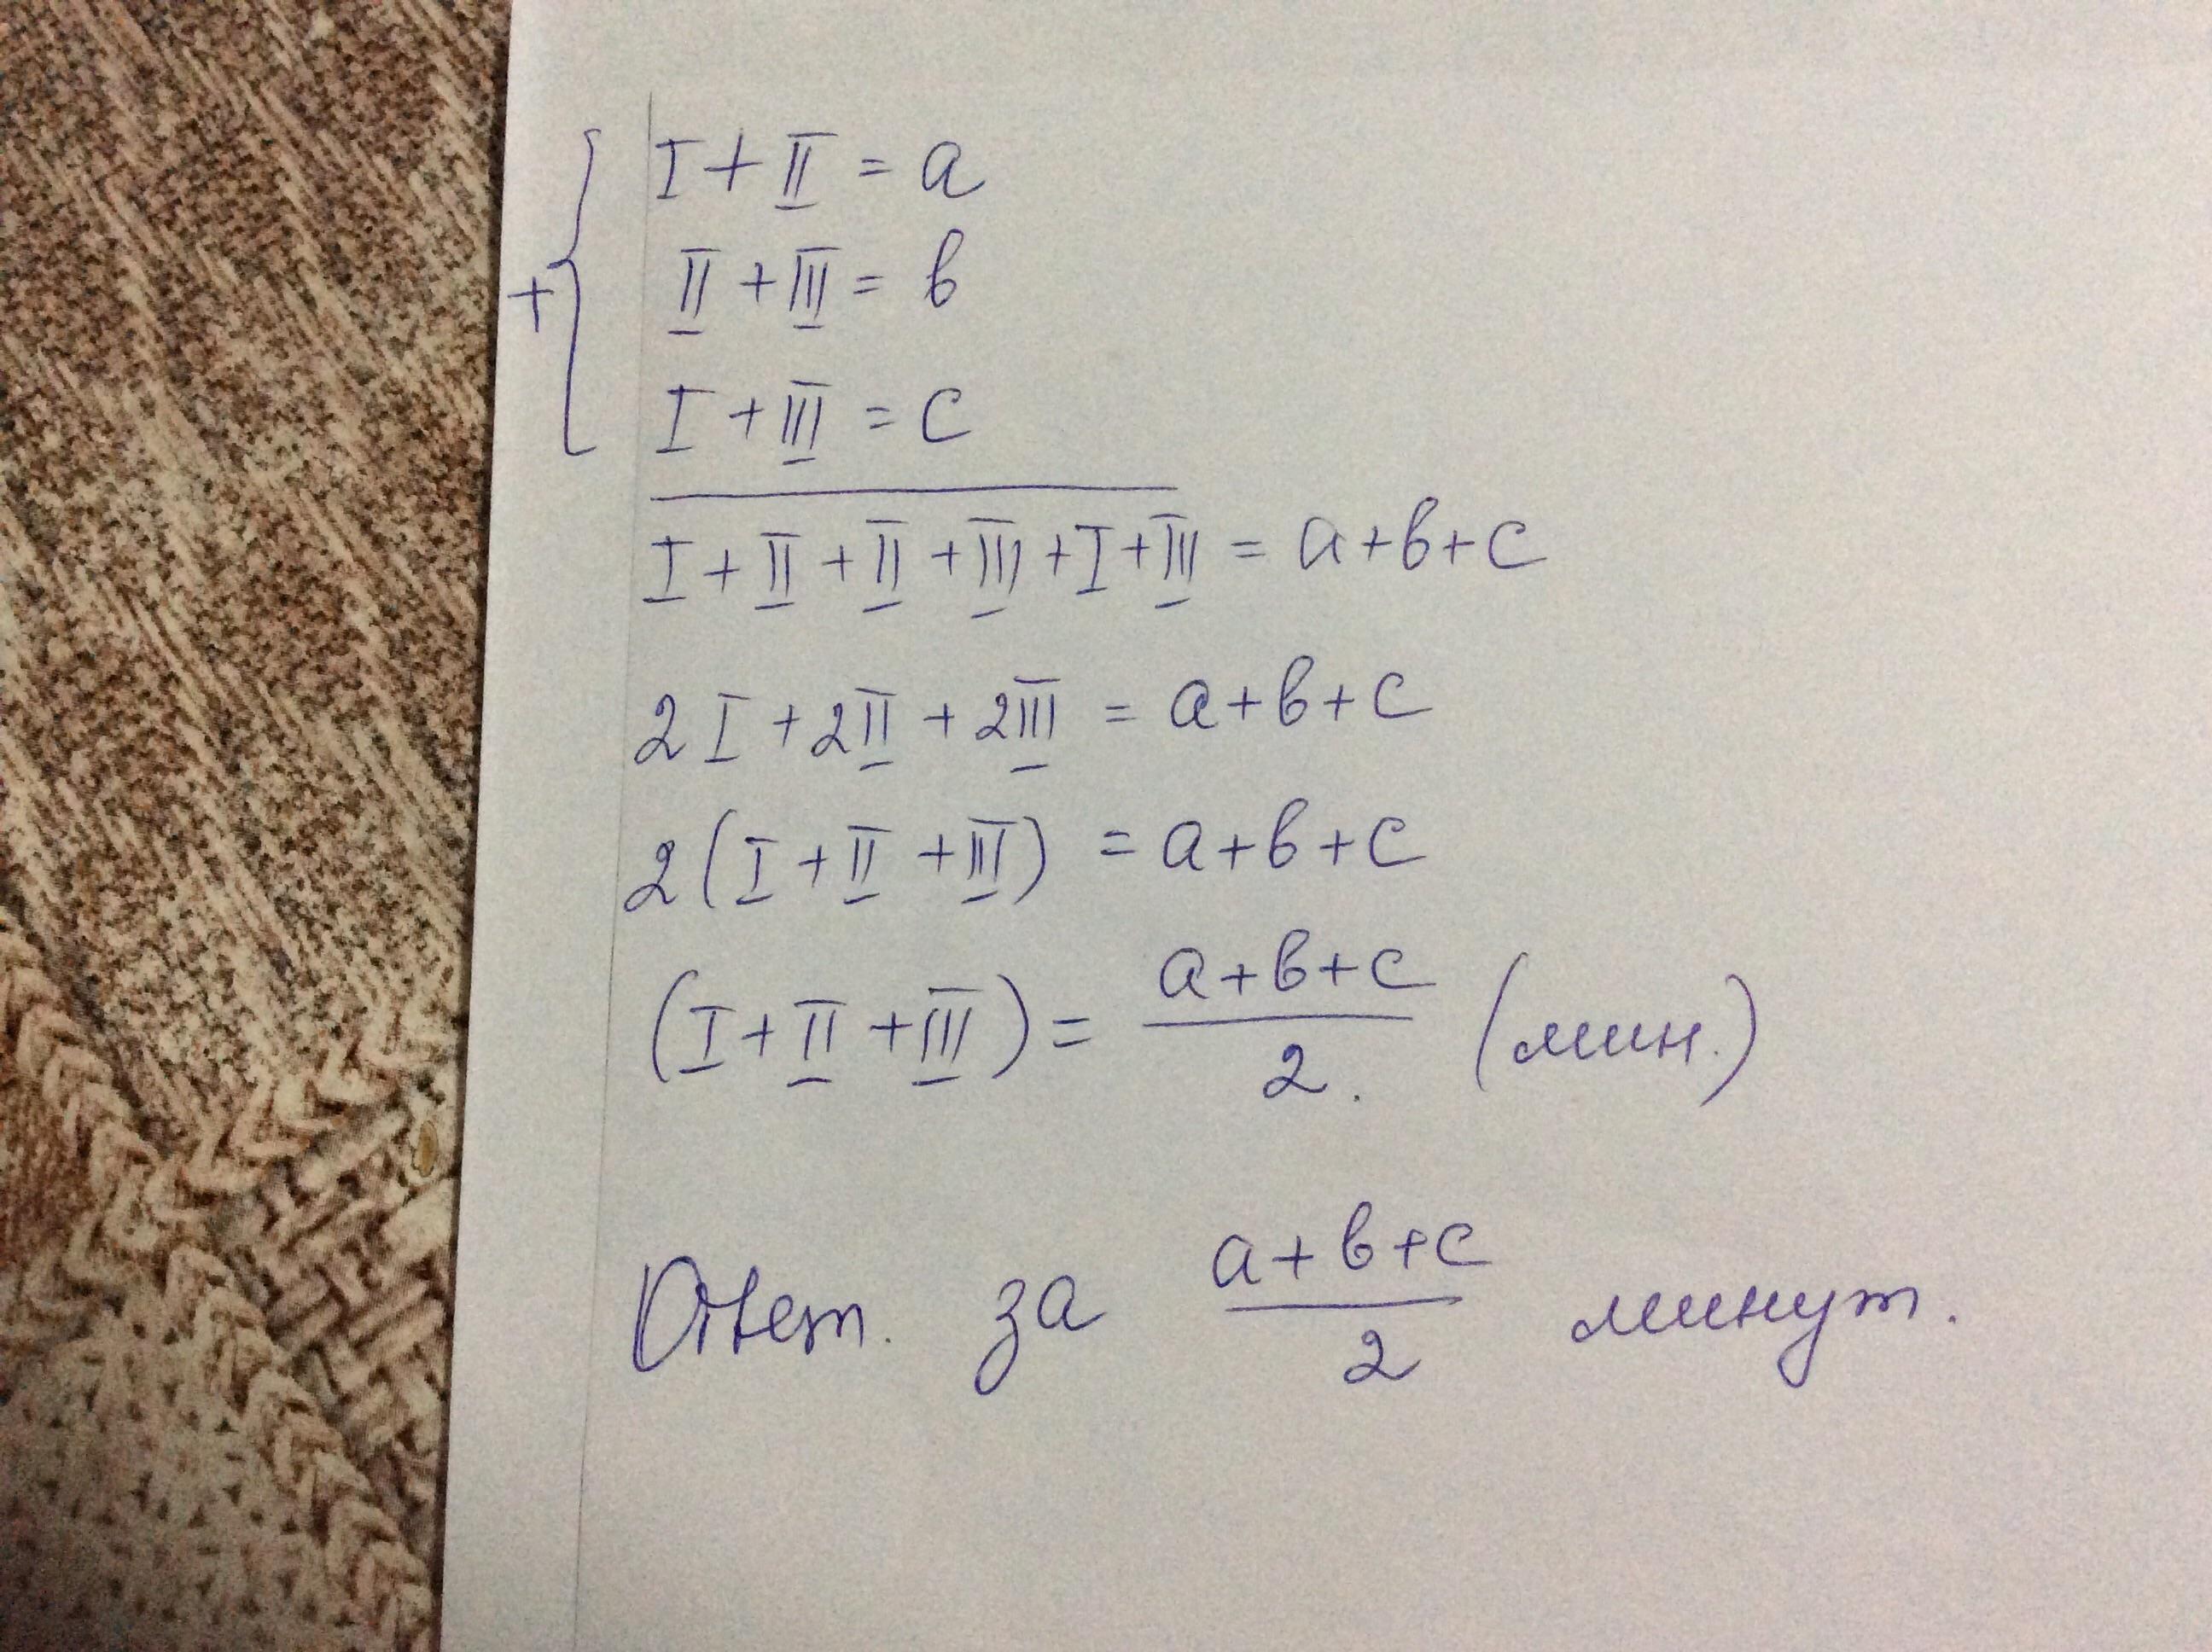 I + II = a
+ { II + III = в
I + III = c
I + II + II + III + I + III = a + в + c
2 I + 2 II + 2 III = a + в + c
2 (I + II + III) = a + в + c
(I + II + III) = a + в + c / 2. (мин.)
Ответ. за a + в + c / 2 минут.